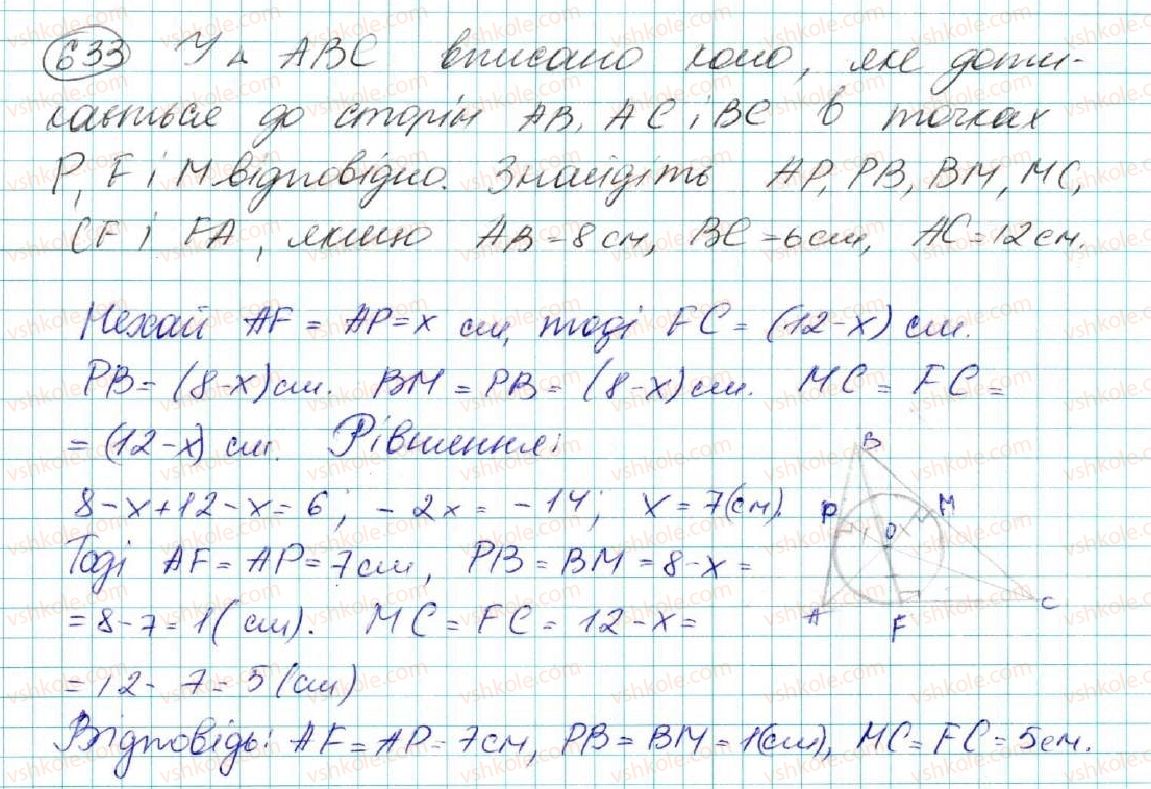 633 У △ ABC вписано коло, яке доти-
кається до сторін AB, AC і BC в точках
P, F і M відповідно. Знайдіть AP, PB, BM, MC,
CF і FA, якщо AB = 8 см, BC = 6 см, AC = 12 см.
Нехай AF = AP = x см, тоді FC = (12 - x) см.
PB = (8 - x) см. BM = PB = (8 - x) см. MC = FC =
= (12 - x) см. Рівняння:
8 - x + 12 - x = 6; - 2x = - 14; x = 7 (см).
Тоді AF = AP = 7 см, PB = BM = 8 - x =
= 8 - 7 = 1 (см). MC = FC = 12 - x =
= 12 - 7 = 5 (см)
Відповідь: AF = AP = 7 см, PB = BM = 1 (см), MC = FC = 5 см.
B
P
M
O
A
F
C
vshkole.com